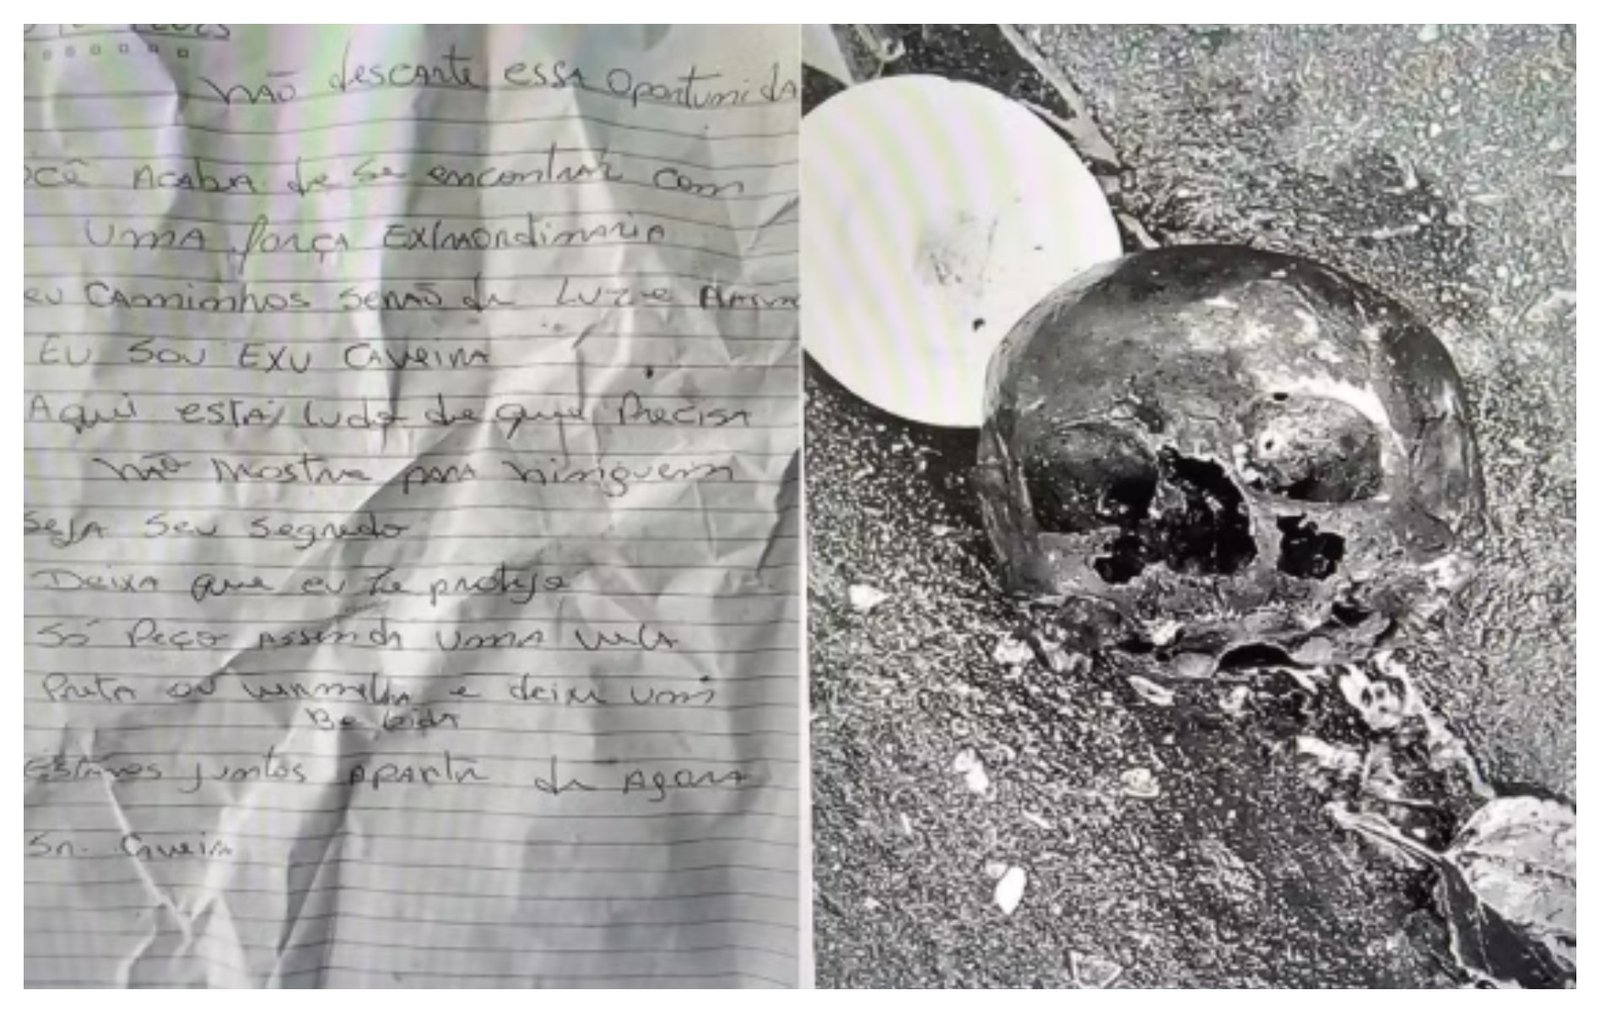 Não descarte essa oportunida
ocê Acaba de se encontrar com
UMA força EXtraordinaria
eu CAminhos serão de Luz e
EU SOU EXU CAVEIRA
Aqui está tudo de que Precisa
Não mostre para ninguem
Seja Seu Segredo
Deixa que eu te proteja
Só Peço assenda uma vela
Preta ou vermelha e deixe uma
Bebida
Estamos juntos aparti de Agora
Sr. Caveira